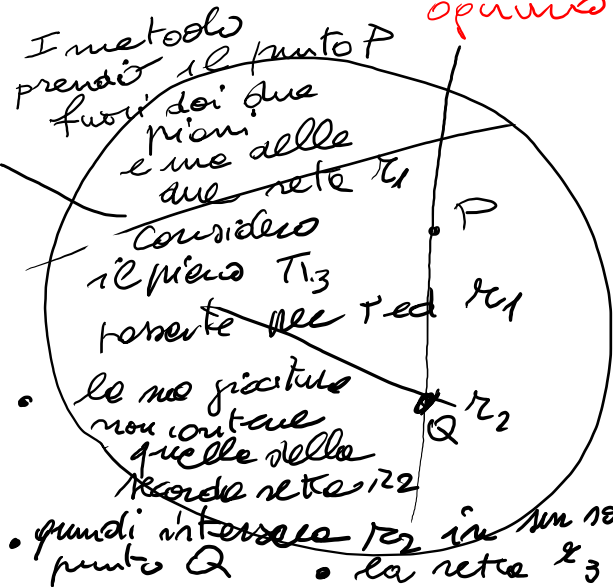 ognuno
I metodo
prendo il punto P
fuori dai due
piani
e una delle
due rette r1
considero
il piano π3
passante per P ed r1
P
• la sua giacitura
non contiene
quella della
seconda retta r2
r2
Q
• quindi interseca r2 in un
punto Q • la retta r3